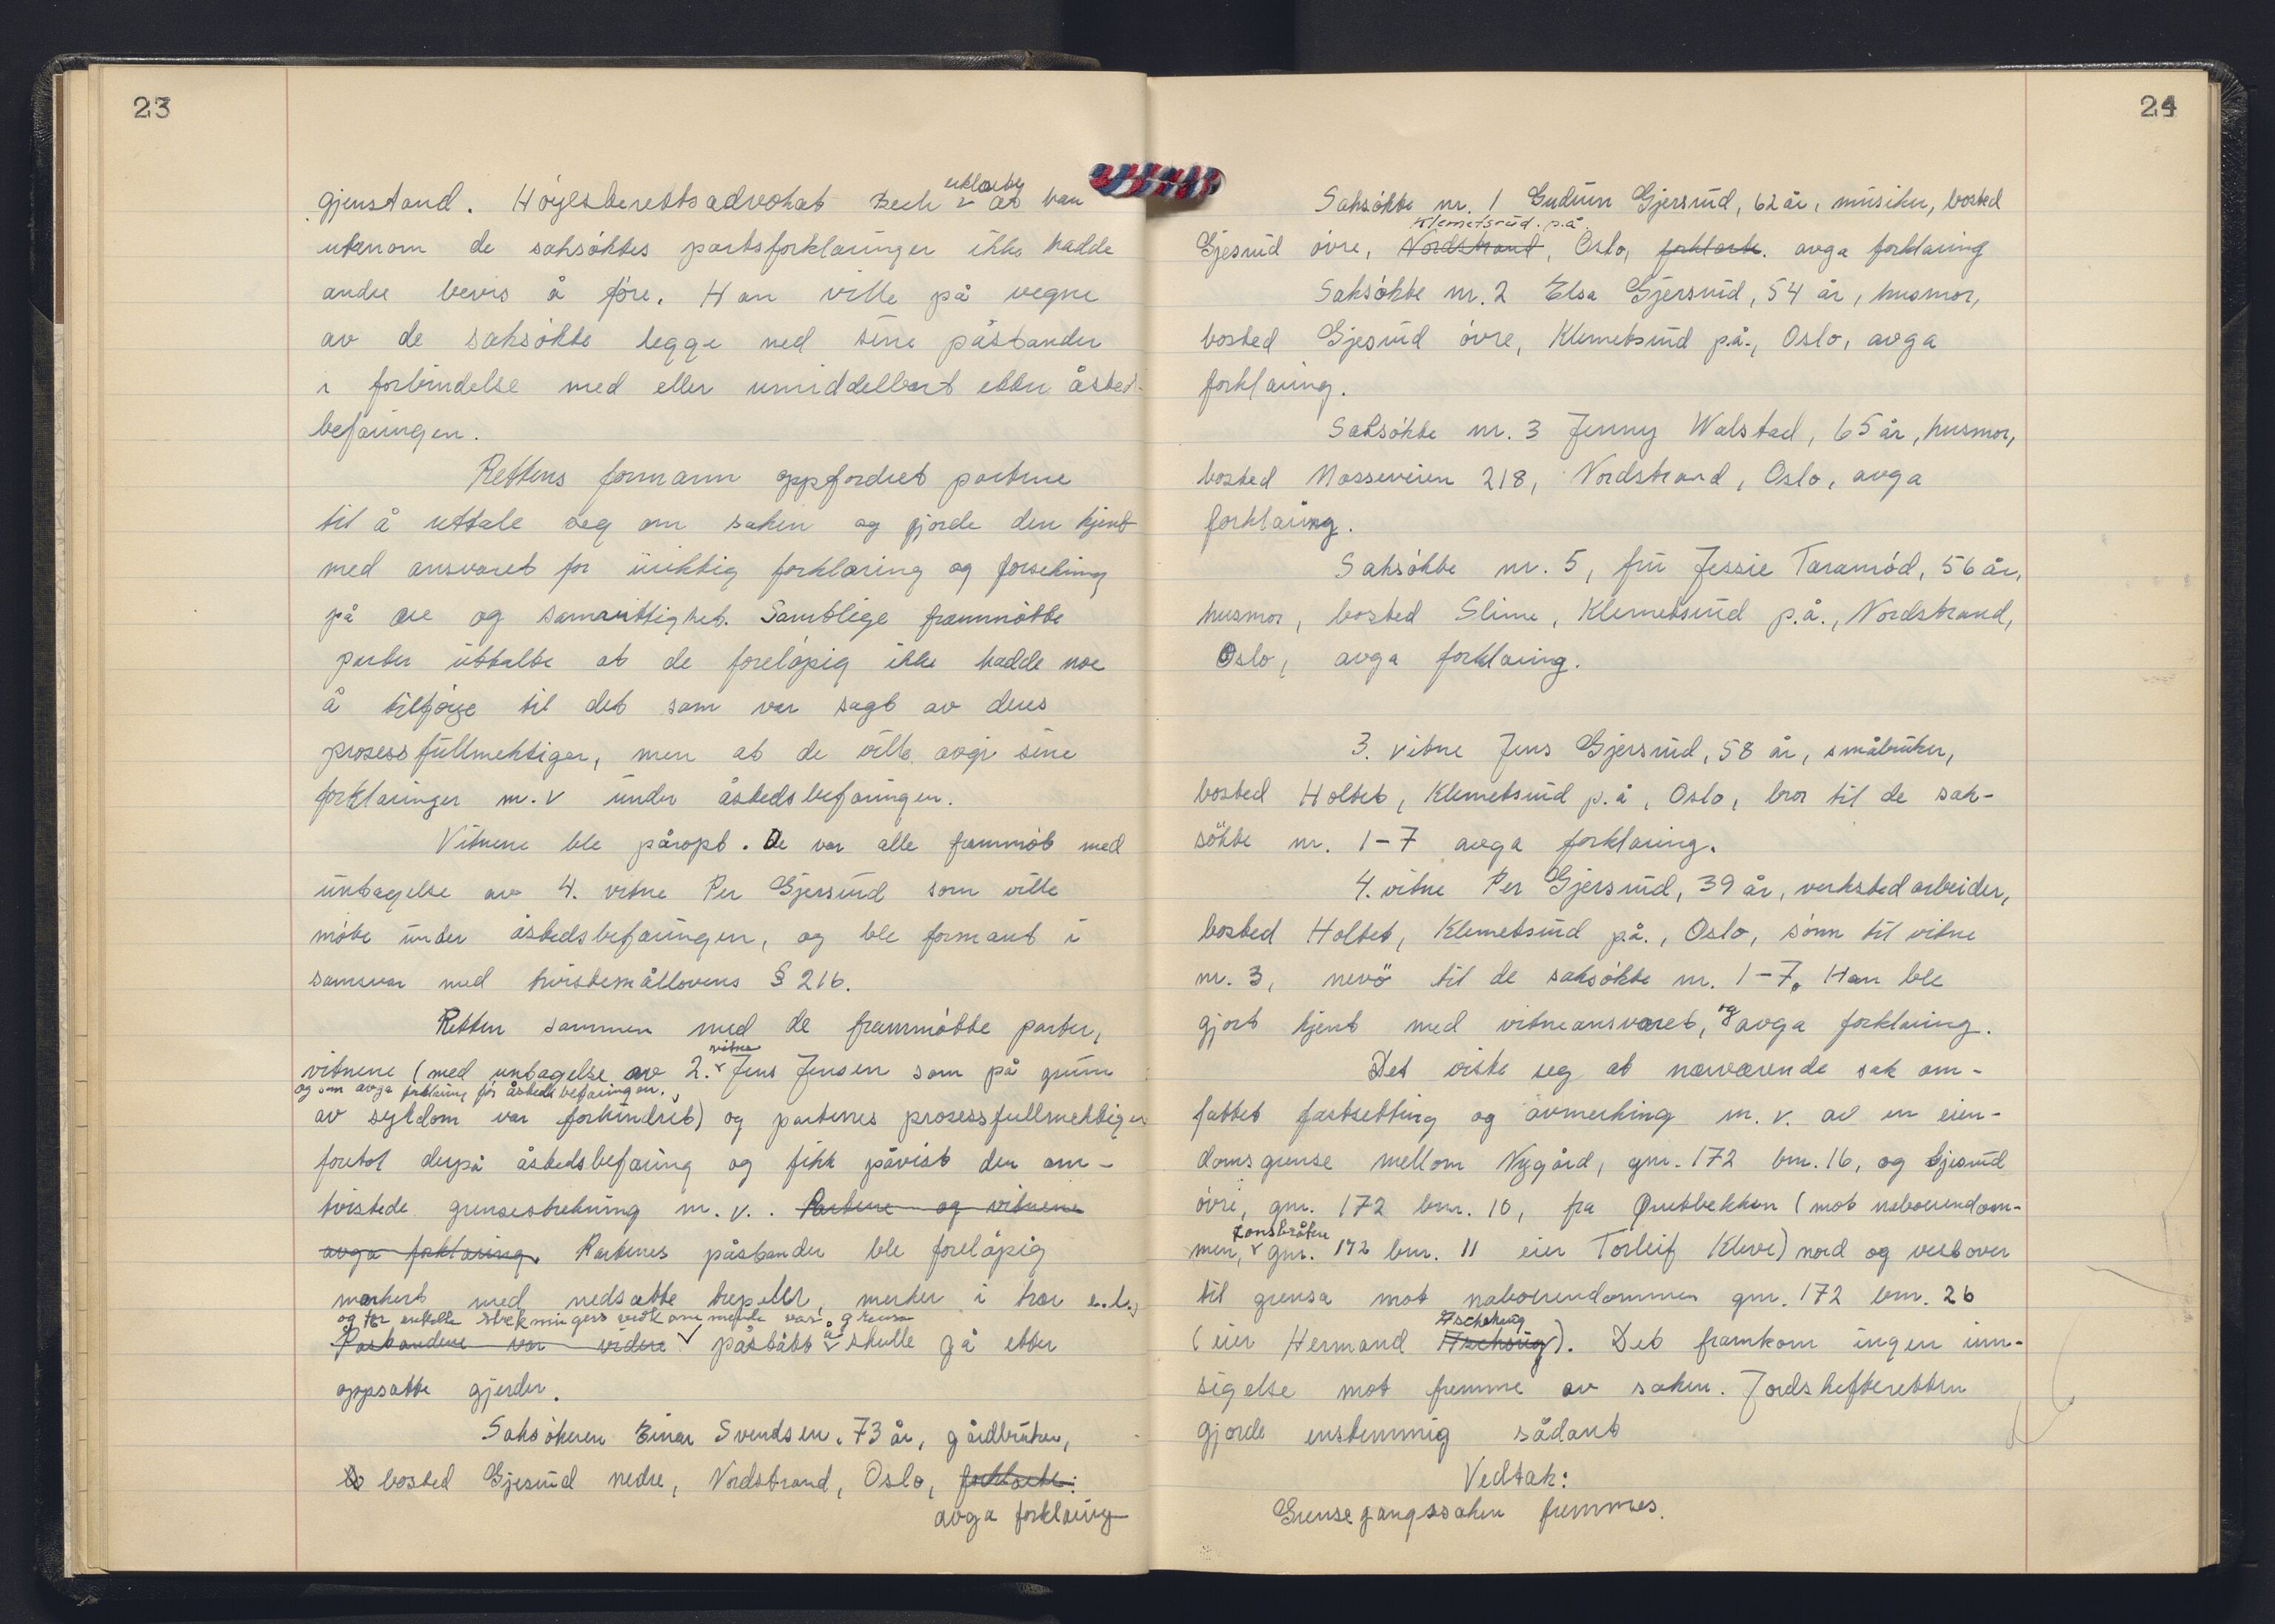 23
gjenstand. Höyesterettsadvokat Bech erklærte at han
utenom de saksöktes partsforklaringer ikke hadde
andre bevis å före. Han ville på vegne
av de saksökte legge ned sine påstander
i forbindelse med eller umiddelbart etter åsteds-
befaringen.
Rettens formann oppfordret partene
til å uttale seg om saken og gjorde dem kjent
med ansvaret for uriktig forklaring og forsikring
på ære og samvittighet. Samtlige frammötte
parter uttalte at de forelöpig ikke hadde noe
å tilföye til det som var sagt av deres
prosessfullmektiger, men at de ville avgi sine
forklaringer m.v under åstedsbefaringen.
Vitnene ble påropt. De var alle frammöt med
untagelse av 4. vitne Per Gjersrud som ville
möte under åstedsbefaringen, og ble formant i
samsvar med tvistemållovens § 216.
Retten sammen med de frammötte parter,
vitnene (med untagelse av 2. vitne Jens Jensen som på grunn
og som avga forklaring för åstedsbefaringen.
av sykdom var forhindret) og partenes prosessfullmektiger
foretok derpå åstedsbefaring og fikk påvist den om-
tvistede grensestrekning m.v.. Partene og vitnene
avga forklaring. Partenes påstander ble forelöpig
markert med nedsatte trepeler, merker i trær e.l.,
og for enkelte strekningers vedkommende var grensa
Påstandene var videre påstått å skulle gå etter
oppsatte gjerder.
Saksökeren Einar Svendsen, 73 år, gårdbruker,
bosted Gjesrud nedre, Nordstrand, Oslo, forklarte:
avga forklaring
24
Saksökte nr. 1 Gudrun Gjersrud, 62 år, musiker, bosted
Klemetsrud p.å.
Gjesrud övre, Nordstrand, Oslo, forklarte. avga forklaring
Saksökte nr. 2 Elsa Gjersrud, 54 år, husmor,
bosted Gjesrud övre, Klemetsrud p.å., Oslo, avga
forklaring.
Saksökte nr. 3 Jenny Walstad, 65 år, husmor,
bosted Mosseveien 218, Nordstrand, Oslo, avga
forklaring.
Saksökte nr. 5, fru Jessie Taramöd, 56 år,
husmor, bosted Slime, Klemetsrud p.å., Nordstrand,
Oslo, avga forklaring.
3. vitne Jens Gjersrud, 58 år, småbruker,
bosted Holtet, Klemetsrud p.å, Oslo, bror til de sak-
sökte nr. 1-7 avga forklaring.
4. vitne Per Gjersrud, 39 år, verkstedarbeider,
bosted Holtet, Klemetsrud på., Oslo, sönn til vitne
nr. 3, nevö til de saksökte nr. 1-7. Han ble
gjort kjent med vitneansvaret, og avga forklaring.
Det viste seg at nærværende sak om-
fattet fastsetting og avmerking m.v. av en eien-
domsgrense mellom Nygård, gnr. 172 bnr. 16, og Gjesrud
övre, gnr. 172 bnr. 10, fra (mot naboeiendom-
men, Tonsbråten gnr. 172 bnr. 11 eier Torleif Kleve) nord og vestover
til grensa mot naboeiendommen gnr. 172 bnr. 26
(eier Hermand Aschehoug). Det framkom ingen inn-
sigelse mot fremme av saken. Jordskifteretten
gjorde enstemmig sådant
Vedtak:
Grensegangssaken fremmes.